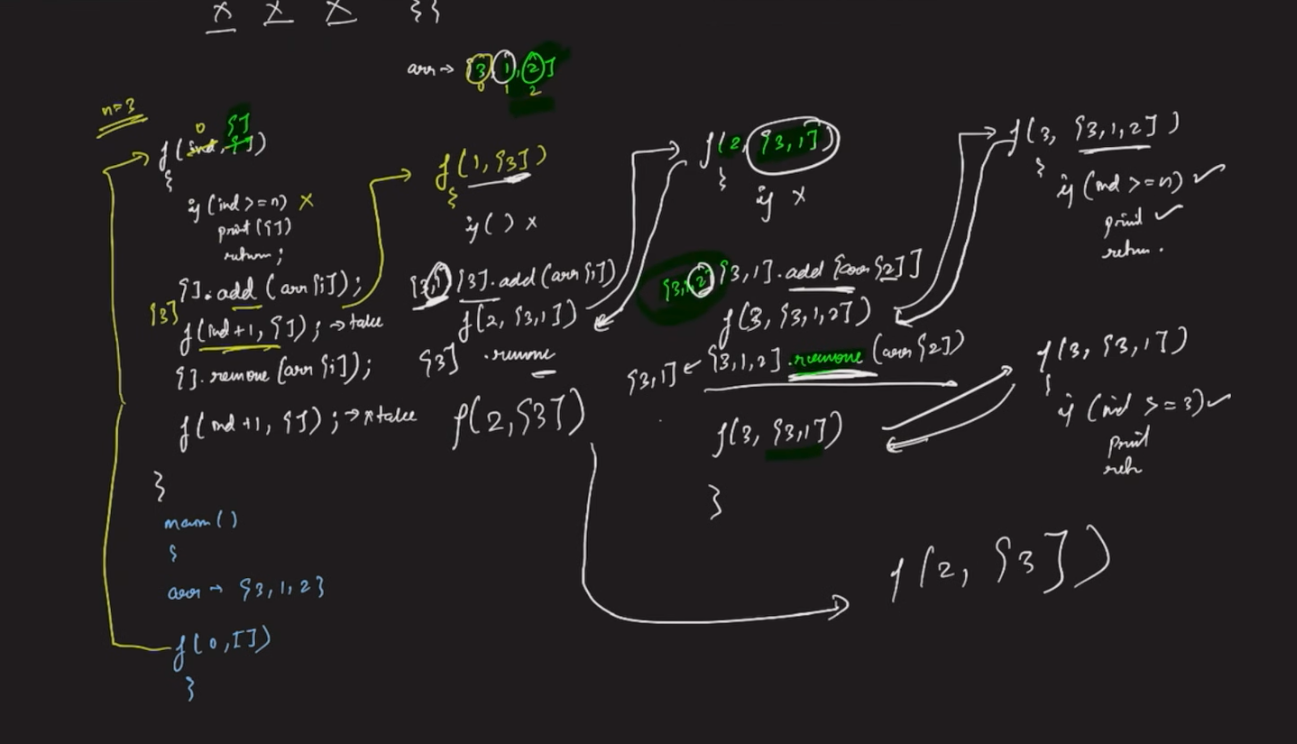 x x x }}
arr → [3, 1, 2]
0 1 2
n=3
0 []
f(ind, [])
{
if (ind >= n) x
print([])
return;
[].add(arr[i]);
[3]
f(ind+1, []); → take
[].remove(arr[i]);
f(ind+1, []); → x take
}
main()
{
arr → [3,1,2]
f(0, [])
}
f(1, [3])
{
if() x
[3,1] [3].add(arr[1])
f(2, [3,1])
[3] .remove
f(2, [3])
f(2, [3,1])
{
if x
[3,1,2] [3,1].add [arr[2]]
f(3, [3,1,2])
[3,1] ← [3,1,2].remove(arr[2])
f(3, [3,1])
}
f(3, [3,1,2])
{
if (ind >= n) ✓
print ✓
return.
f(3, [3,1])
{
if (ind >= 3) ✓
print
retn
f(2, [3])